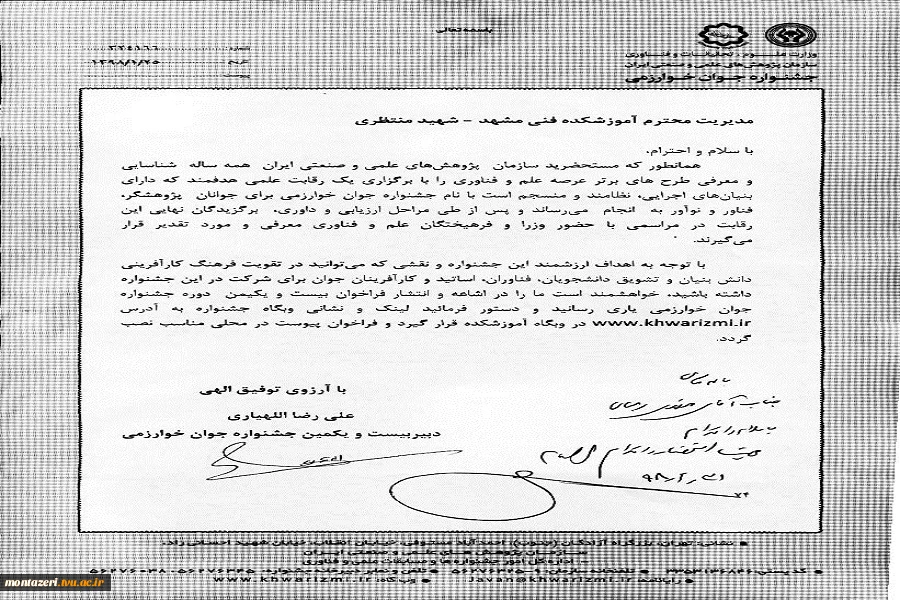 باسمه تعالی
وزارت علوم، تحقیقات و فناوری
سازمان پژوهش‌های علمی و صنعتی ایران
جشنواره جوان خوارزمی
شماره
۲۲۴۱۶۶
تاریخ
۱۳۹۸/۱/۲۵
پیوست
مدیریت محترم آموزشکده فنی مشهد - شهید منتظری
با سلام و احترام،
همانطور که مستحضرید سازمان پژوهش‌های علمی و صنعتی ایران همه ساله شناسایی
و معرفی طرح های برتر عرصه علم و فناوری را با برگزاری یک رقابت علمی هدفمند که دارای
بنیان‌های اجرایی، نظامند و منسجم است با نام جشنواره جوان خوارزمی برای جوانان پژوهشگر،
فناور و نوآور به انجام می‌رساند و پس از طی مراحل ارزیابی و داوری، برگزیدگان نهایی این
رقابت در مراسمی با حضور وزرا و فرهیختگان علم و فناوری معرفی و مورد تقدیر قرار
می‌گیرند.
با توجه به اهداف ارزشمند این جشنواره و نقشی که می‌توانید در تقویت فرهنگ کارآفرینی
دانش بنیان و تشویق دانشجویان، فناوران، اساتید و کارآفرینان جوان برای شرکت در این جشنواره
داشته باشید، خواهشمند است ما را در اشاعه و انتشار فراخوان بیست و یکیمن دوره جشنواره
جوان خوارزمی یاری رسانید و دستور فرمائید لینک و نشانی وبگاه جشنواره به آدرس
www.khwarizmi.ir در وبگاه آموزشکده قرار گیرد و فراخوان پیوست در محلی مناسب نصب
گردد.
با آرزوی توفیق الهی
علی رضا اللهیاری
دبیربیست و یکمین جشنواره جوان خوارزمی
جناب آقای
نشانی: تهران، بزرگراه آزادگان (جنوب)، احمدآباد مستوفی، خیابان انقلاب، خیابان شهید احسانی راد،
سازمان پژوهش های علمی و صنعتی ایران
اداره کل امور جشنواره ها و مسابقات علمی و فناوری
کدپستی: ۳۳۵۳۱۳۶۸۴۶
رایانامه: Javan@khwarizmi.ir وب گاه: www.khwarizmi.ir
montazeri.tvu.ac.ir